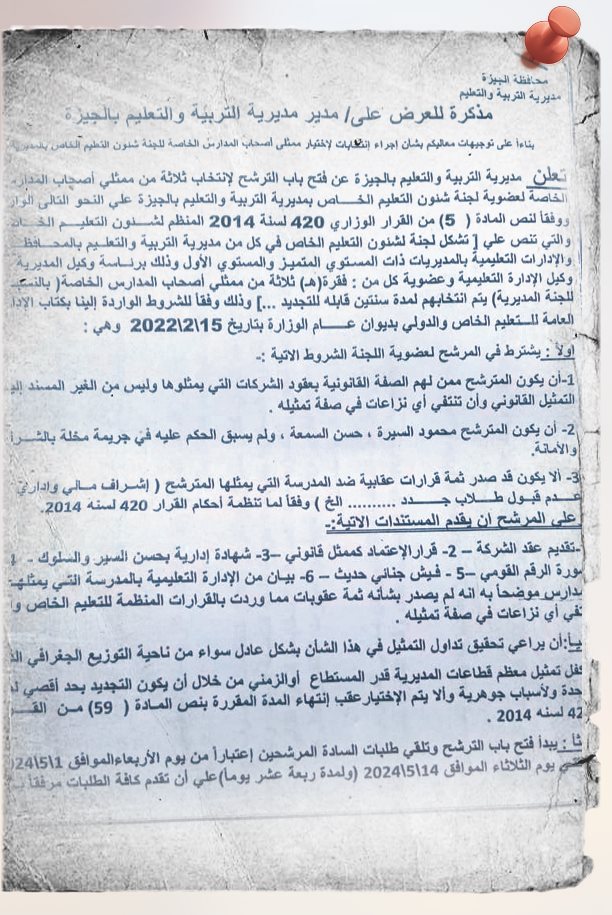 محافظة الجيزة
مديرية التربية والتعليم
مذكرة للعرض على/ مدير مديرية التربية والتعليم بالجيزة
بناءاً على توجيهات معاليكم بشأن إجراء إنتخابات لإختيار ممثلى أصحاب المدارس الخاصة للجنة شئون التعليم الخاص
تعلن مديرية التربية والتعليم بالجيزة عن فتح باب الترشح لإنتخاب ثلاثة من ممثلي أصحاب
الخاصة لعضوية لجنة شئون التعليم الخــاص بمديرية التربية والتعليم بالجيزة علي النحو التالى
ووفقاً لنص المادة ( 5) من القرار الوزاري 420 لسنة 2014 المنظم لشــئون التعليــم
والتي تنص علي [ تشكل لجنة لشئون التعليم الخاص في كل من مديرية التربية والتعلــيم
والإدارات التعليمية بالمديريات ذات المستوي المتميز والمستوي الأول وذلك برئاسة وكيل المديرية
وكيل الإدارة التعليمية وعضوية كل من : فقرة(هـ) ثلاثة من ممثلي أصحاب المدارس الخاصة(
للجنة المديرية) يتم انتخابهم لمدة سنتين قابله للتجديد ...] وذلك وفقاً للشروط الواردة إلينا بكتاب
العامة للــتعليم الخاص والدولي بديوان عـــــام الوزارة بتاريخ 15\2\2022 وهي :
اولا : يشترط في المرشح لعضوية اللجنة الشروط الاتية :-
1-أن يكون المترشح ممن لهم الصفة القانونية بعقود الشركات التي يمثلوها وليس من الغير المسند
التمثيل القانوني وأن تنتفي أي نزاعات في صفة تمثيله .
2- أن يكون المترشح محمود السيرة ، حسن السمعة ، ولم يسبق الحكم عليه في جريمة مخلة
والأمانة.
3- ألا يكون قد صدر ثمة قرارات عقابية ضد المدرسة التي يمثلها المترشح ( إشــراف مــالي واداري
عــدم قبــول طــلاب جــــدد .......... الخ ) وفقاً لما تنظمة أحكام القرار 420 لسنه 2014.
على المرشح ان يقدم المستندات الاتية:-
-تقديم عقد الشركة – 2- قرارالإعتماد كممثل قانوني –3- شهادة إدارية بحسن السير والسلوك -
الرقم القومي –5 - فيش جنائي حديث – 6- بيان من الإدارة التعليمية بالمدرسة التــي
موضحاً به انه لم يصدر بشأنه ثمة عقوبات مما وردت بالقرارات المنظمة للتعليم الخاص
أي نزاعات في صفة تمثيله .
أن يراعي تحقيق تداول التمثيل في هذا الشأن بشكل عادل سواء من ناحية التوزيع الجغرافي
تمثيل معظم قطاعات المديرية قدر المستطاع أوالزمني من خلال أن يكون التجديد بحد أقصي
ولأسباب جوهرية وألا يتم الإختيارعقب إنتهاء المدة المقررة بنص المــادة ( 59) مــن
لسنه 2014 .
يبدأ فتح باب الترشح وتلقي طلبات السادة المرشحين إعتباراً من يوم الأربعاءالموافق
يوم الثلاثاء الموافق 14\5\2024 (ولمدة ربعة عشر يوماً)علي أن تقدم كافة الطلبات